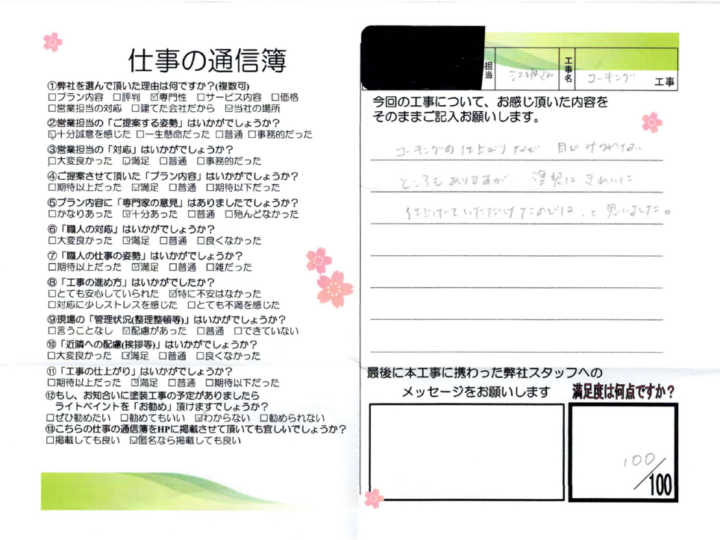 仕事の通信簿
①弊社を選んで頂いた理由は何ですか?(複数可)
□プラン内容 □評判 ☑専門性 □サービス内容 □価格
□営業担当の対応 □建てた会社だから ☑当社の場所
②営業担当の「ご提案する姿勢」はいかがでしょうか?
☑十分誠意を感じた □一生懸命だった □普通 □事務的だった
③営業担当の「対応」はいかがでしょうか?
□大変良かった ☑満足 □普通 □事務的だった
④ご提案させて頂いた「プラン内容」はいかがでしょうか?
□期待以上だった ☑満足 □普通 □期待以下だった
⑤プラン内容に「専門家の意見」はありましたでしょうか?
□かなりあった ☑十分あった □普通 □殆んどなかった
⑥「職人の対応」はいかがでしょうか?
□大変良かった ☑満足 □普通 □良くなかった
⑦「職人の仕事の姿勢」はいかがでしょうか?
□期待以上だった ☑満足 □普通 □雑だった
⑧「工事の進め方」はいかがでしたか?
□とても安心していられた ☑特に不安はなかった
□対応に少しストレスを感じた □とても不満を感じた
⑨現場の「管理状況(整理整頓等)」はいかがでしょうか?
□言うことなし ☑配慮があった □普通 □できていない
⑩「近隣への配慮(挨拶等)」はいかがでしょうか?
□大変良かった ☑満足 □普通 □良くなかった
⑪「工事の仕上がり」はいかがでしょうか?
□期待以上だった ☑満足 □普通 □期待以下だった
⑫もし、お知合いに塗装工事の予定がありましたら
ライトペイントを「お勧め」頂けますでしょうか?
□ぜひ勧めたい □勧めてもいい ☑わからない □勧められない
⑬こちらの仕事の通信簿をHPに掲載させて頂いても宜しいでしょうか?
□掲載しても良い ☑匿名なら掲載しても良い
担当
工事名 コーキング 工事
今回の工事について、お感じ頂いた内容を
そのままご記入お願いします。
コーキングの仕上がりなど
ところもありますが 塗装はきれいに
仕上げていただけた と思いました。
最後に本工事に携わった弊社スタッフへの
メッセージをお願いします
満足度は何点ですか?
100/100